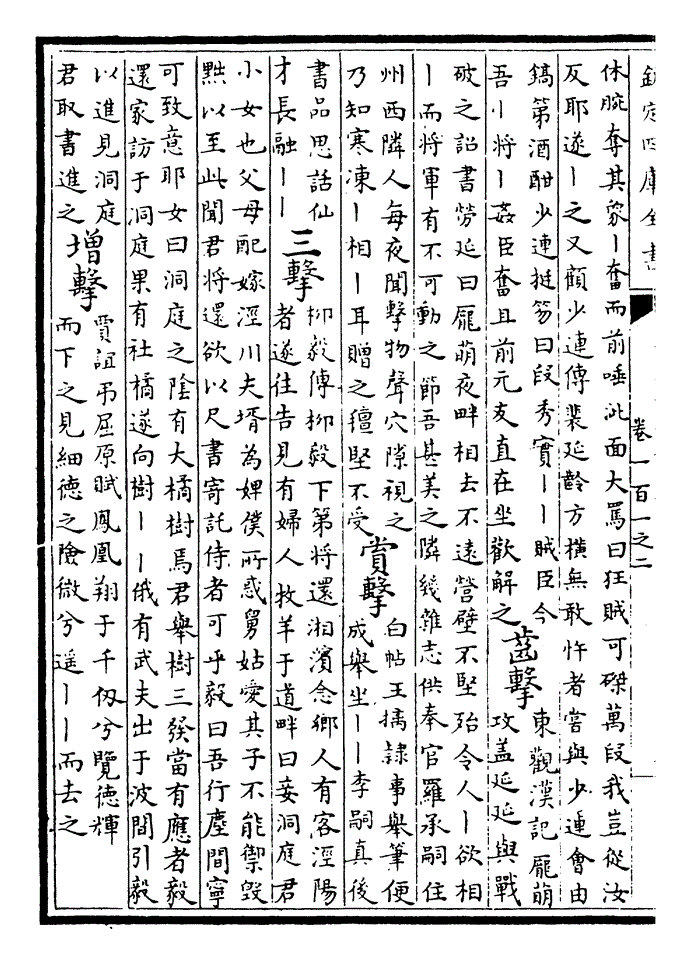 欽定四庫全書
卷一百一之二
休腕奪其象丨奮而前唾泚面大罵曰狂賊可磔萬段我豈從汝
反耶遂丨之又顧少連傳裴延齡方橫無敢忤者嘗與少連會由
鎬第酒酣少連挺笏曰段秀實丨丨賊臣今
吾丨將丨姦臣奮且前元友直在坐歡解之
齒擊
東觀漢記龎萌
攻盖延延與戰
破之詔書勞延曰龎萌夜畔相去不遠營壁不堅殆令人丨欲相
丨而將軍有不可動之節吾甚美之隣幾雜志供奉官羅承嗣住
州西隣人每夜聞擊物聲穴隙視之
乃知寒凍丨相丨耳贈之氊堅不受
賞擊
白帖王摛隷事舉筆便
成舉坐丨丨李嗣真後
書品思話仙
才長融丨丨
三擊
柳毅傳柳毅下第將還湘濱念鄉人有客涇陽
者遂往告見有婦人牧羊于道畔曰妾洞庭君
小女也父母配嫁涇川夫壻為婢僕所惑舅姑愛其子不能禦毀
黜以至此聞君將還欲以尺書寄託侍者可乎毅曰吾行塵間寧
可致意耶女曰洞庭之陰有大橘樹焉君舉樹三發當有應者毅
還家訪于洞庭果有社橘遂向樹丨丨俄有武夫出于波間引毅
以進見洞庭
君取書進之
增擊
賈誼弔屈原賦鳳凰翔于千仭兮覽德輝
而下之見細德之險微兮遥丨丨而去之